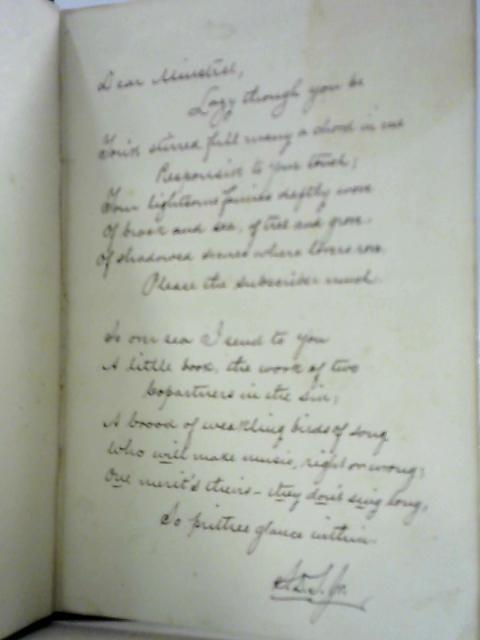 Dear Minstrel,
Lazy though you be
You've stirred full many a chord in me
Responsive to your touch;
Your lightsome fancies deftly wove
Of brook and sea, of tree and grove,
Of shadowed scenes where lovers rove
Please the subscriber much.
So our sea I send to you
A little book, the work of two
Copartners in the sin;
A brood of weakling birds of song
Who will make music, right or wrong;
One merit's theirs – they don't sing long,
So prithee glance within.